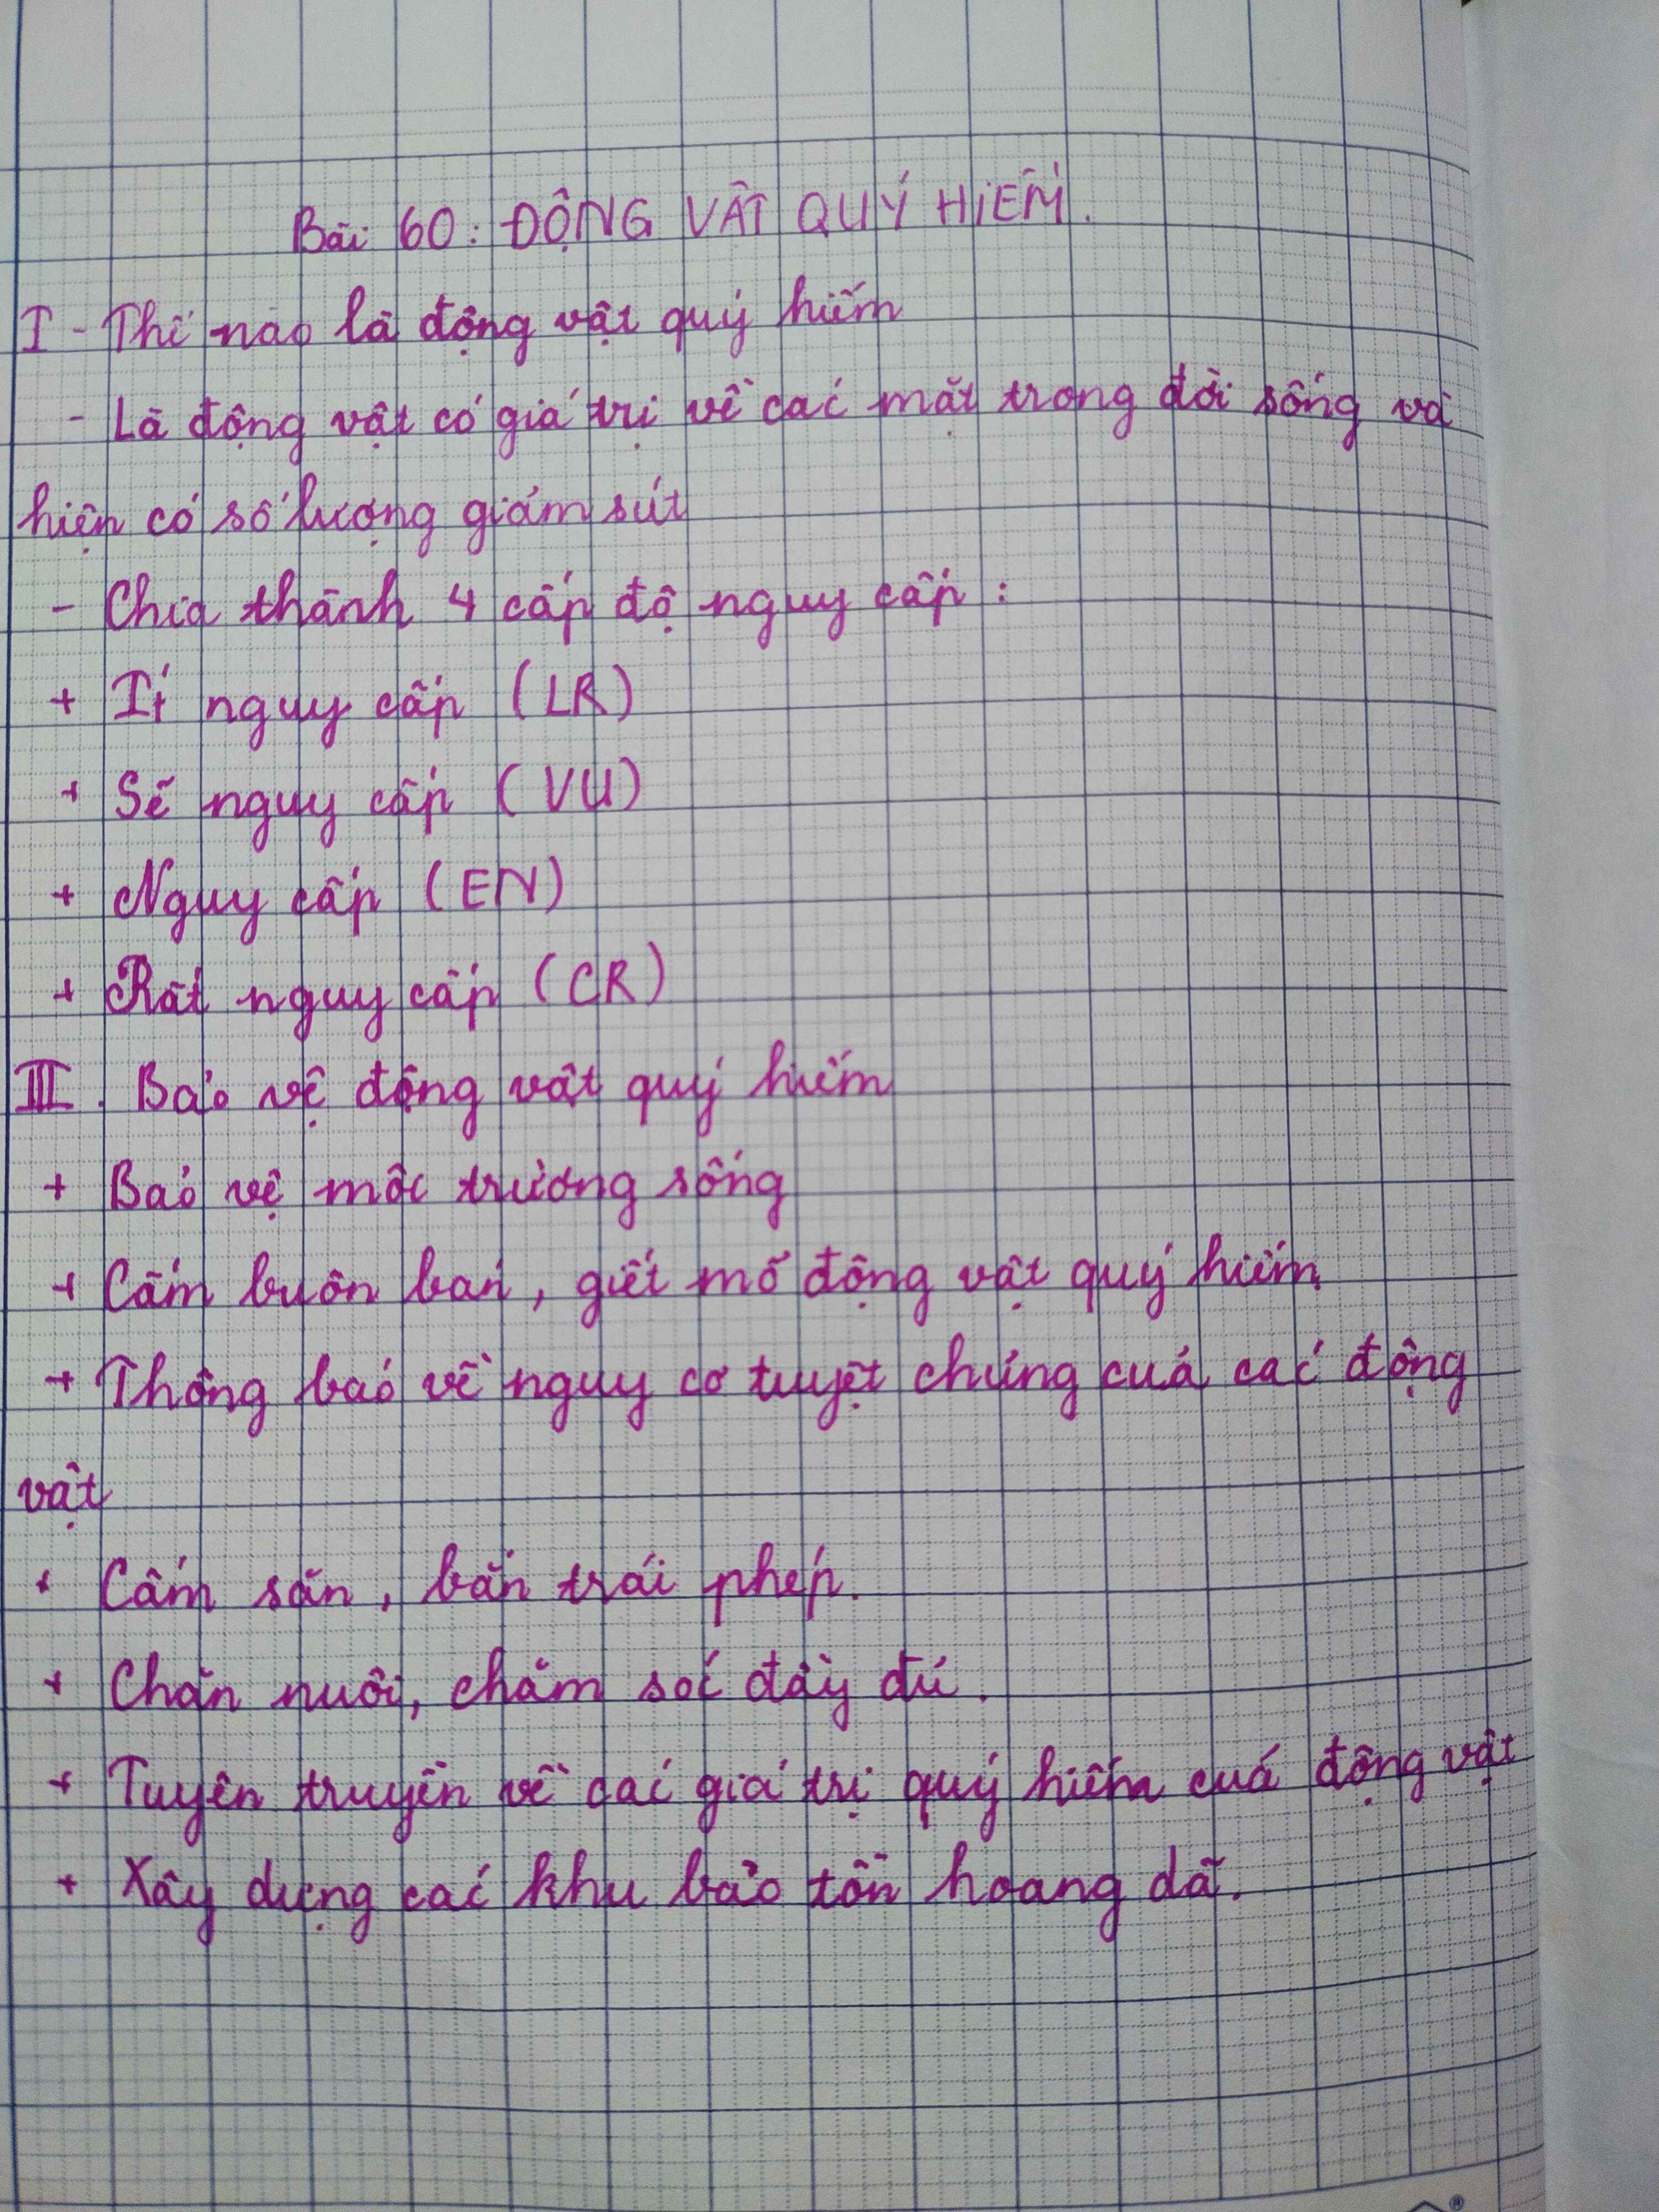 Bài 60: ĐỘNG VẬT QUÝ HIẾM.
I - Thế nào là động vật quý hiếm
- Là động vật có giá trị về các mặt trong đời sống và
hiện có số lượng giảm sút
- Chia thành 4 cấp độ nguy cấp :
+ Ít nguy cấp (LR)
+ Sẽ nguy cấp (VU)
+ Nguy cấp (EN)
+ Rất nguy cấp (CR)
III. Bảo vệ động vật quý hiếm
+ Bảo vệ môi trường sống
+ Cấm buôn bán, giết mổ động vật quý hiếm.
+ Thông báo về nguy cơ tuyệt chủng của các động
vật
+ Cấm săn, bắn trái phép.
+ Chăn nuôi, chăm sóc đầy đủ.
+ Tuyên truyền về các giá trị quý hiếm của động vật
+ Xây dựng các khu bảo tồn hoang dã.